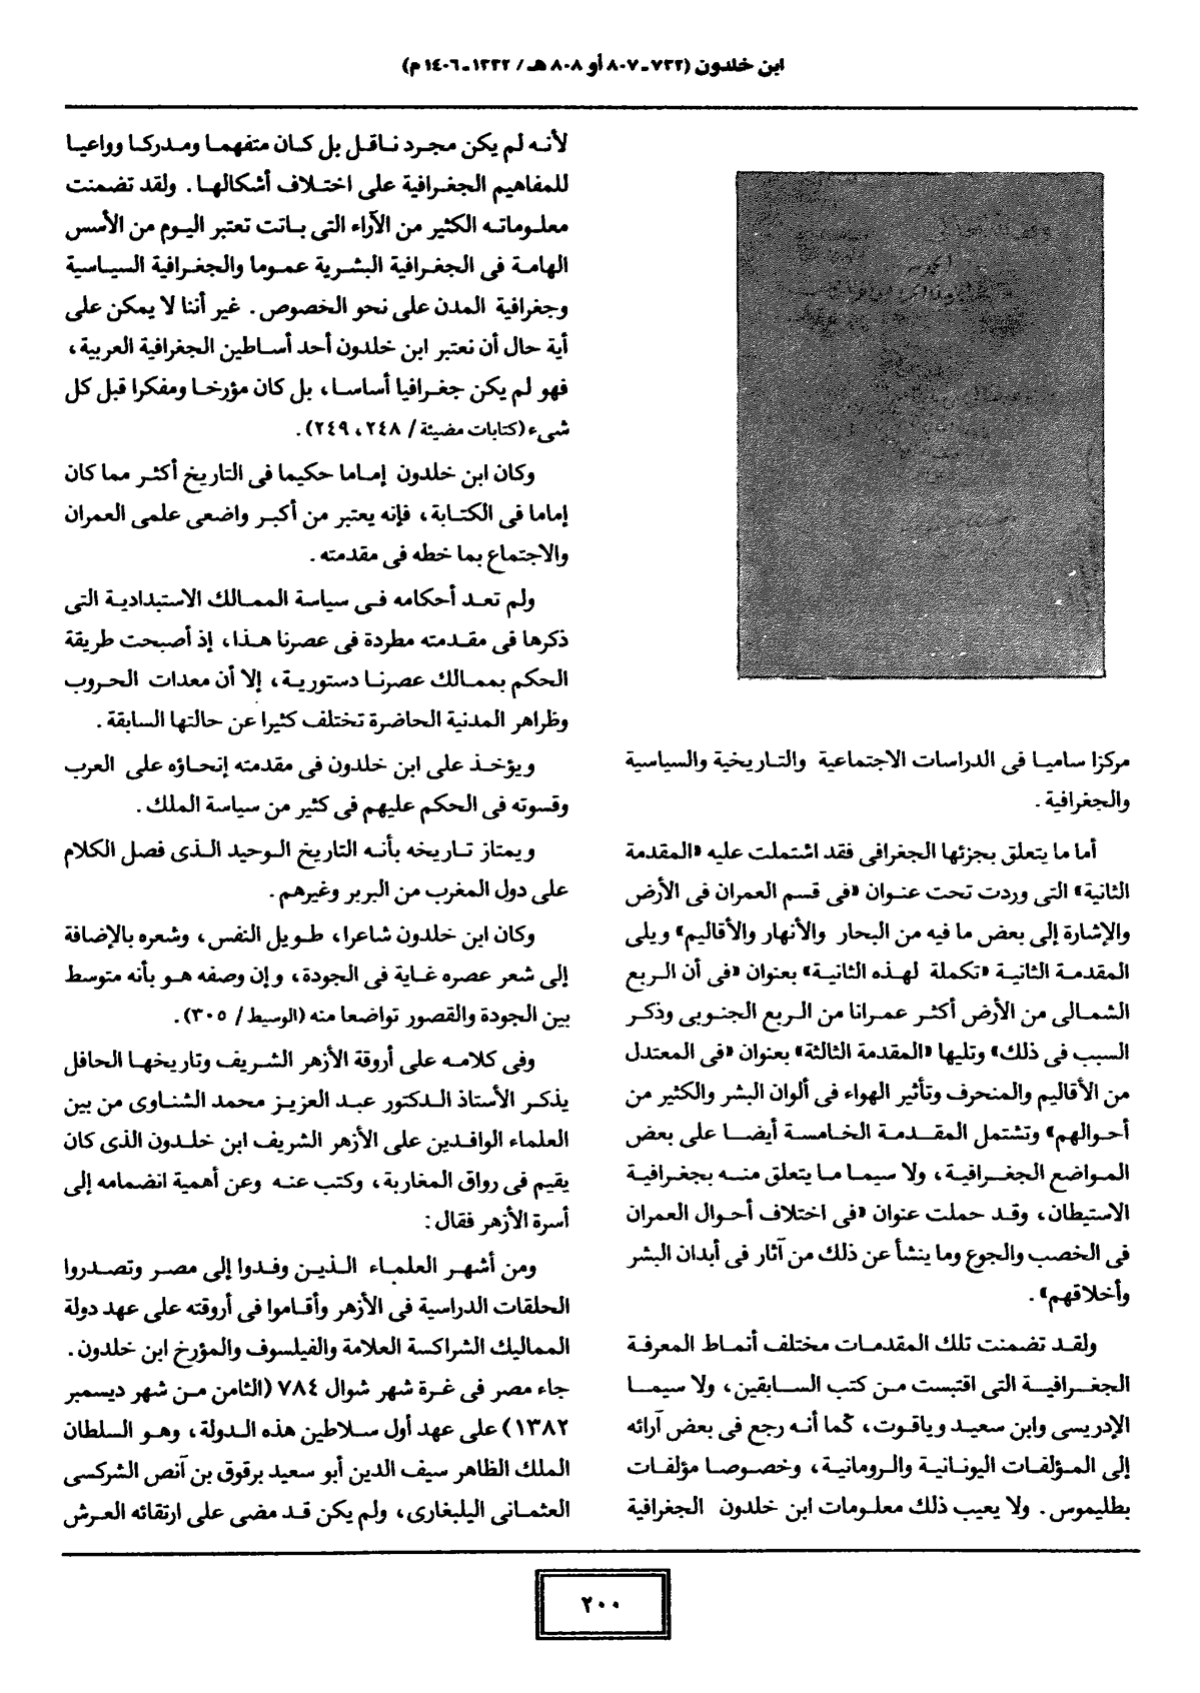 ابن خلدون (٧٣٢ـ ٨٠٧ أو ٨٠٨ هـ / ١٣٣٢ـ ١٤٠٦ م)
مركزا ساميا فى الدراسات الاجتماعية والتاريخية والسياسية
والجغرافية .
أما ما يتعلق بجزئها الجغرافى فقد اشتملت عليه «المقدمة
الثانية» التى وردت تحت عنوان «فى قسم العمران فى الأرض
والإشارة إلى بعض ما فيه من البحار والأنهار والأقاليم» ويلى
المقدمة الثانية «تكملة لهذه الثانية» بعنوان «فى أن الربع
الشمالى من الأرض أكثر عمرانا من الربع الجنوبى وذكر
السبب فى ذلك» وتليها «المقدمة الثالثة» بعنوان «فى المعتدل
من الأقاليم والمنحرف وتأثير الهواء فى ألوان البشر والكثير من
أحوالهم» وتشتمل المقدمة الخامسة أيضا على بعض
المواضع الجغرافية، ولا سيما ما يتعلق منه بجغرافية
الاستيطان، وقد حملت عنوان «فى اختلاف أحوال العمران
فى الخصب والجوع وما ينشأ عن ذلك من آثار فى أبدان البشر
وأخلاقهم» .
ولقد تضمنت تلك المقدمات مختلف أنماط المعرفة
الجغرافية التى اقتبست من كتب السابقين، ولا سيما
الإدريسى وابن سعيد وياقوت، كما أنه رجع فى بعض آرائه
إلى المؤلفات اليونانية والرومانية، وخصوصا مؤلفات
بطليموس . ولا يعيب ذلك معلومات ابن خلدون الجغرافية
لأنه لم يكن مجرد ناقل بل كان متفهما ومدركا وواعيا
للمفاهيم الجغرافية على اختلاف أشكالها . ولقد تضمنت
معلوماته الكثير من الآراء التى باتت تعتبر اليوم من الأسس
الهامة فى الجغرافية البشرية عموما والجغرافية السياسية
وجغرافية المدن على نحو الخصوص . غير أننا لا يمكن على
أية حال أن نعتبر ابن خلدون أحد أساطين الجغرافية العربية،
فهو لم يكن جغرافيا أساسا، بل كان مؤرخا ومفكرا قبل كل
شىء (كتابات مضيئة / ٢٤٨، ٢٤٩) .
وكان ابن خلدون إماما حكيما فى التاريخ أكثر مما كان
إماما فى الكتابة، فإنه يعتبر من أكبر واضعى علمى العمران
والاجتماع بما خطه فى مقدمته .
ولم تعد أحكامه فى سياسة الممالك الاستبدادية التى
ذكرها فى مقدمته مطردة فى عصرنا هذا، إذ أصبحت طريقة
الحكم بممالك عصرنا دستورية، إلا أن معدات الحروب
وظراهر المدنية الحاضرة تختلف كثيرا عن حالتها السابقة .
ويؤخذ على ابن خلدون فى مقدمته إنحاؤه على العرب
وقسوته فى الحكم عليهم فى كثير من سياسة الملك .
ويمتاز تاريخه بأنه التاريخ الوحيد الذى فصل الكلام
على دول المغرب من البربر وغيرهم .
وكان ابن خلدون شاعرا، طويل النفس، وشعره بالإضافة
إلى شعر عصره غاية فى الجودة، وإن وصفه هو بأنه متوسط
بين الجودة والقصور تواضعا منه (الوسيط / ٣٠٥) .
وفى كلامه على أروقة الأزهر الشريف وتاريخها الحافل
يذكر الأستاذ الدكتور عبد العزيز محمد الشناوى من بين
العلماء الوافدين على الأزهر الشريف ابن خلدون الذى كان
يقيم فى رواق المغاربة، وكتب عنه وعن أهمية انضمامه إلى
أسرة الأزهر فقال :
ومن أشهر العلماء الذين وفدوا إلى مصر وتصدروا
الحلقات الدراسية فى الأزهر وأقاموا فى أروقته على عهد دولة
المماليك الشراكسة العلامة والفيلسوف والمؤرخ ابن خلدون .
جاء مصر فى غرة شهر شوال ٧٨٤ (الثامن من شهر ديسمبر
١٣٨٢) على عهد أول سلاطين هذه الدولة، وهو السلطان
الملك الظاهر سيف الدين أبو سعيد برقوق بن آنص الشركسى
العثمانى اليلبغارى، ولم يكن قد مضى على ارتقائه العرش
٢٠٠